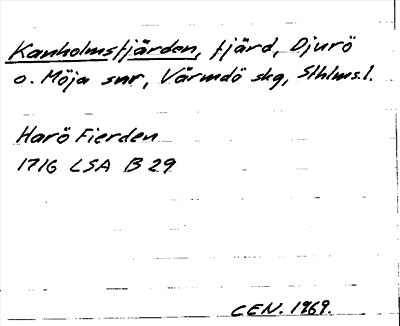 Kanholmsfjärden, fjärd, Djurö
o. Möja snr, Värmdö skg, Sthlms l.
Harö Fierden
1716 LSA B 29
CEN. 1969.